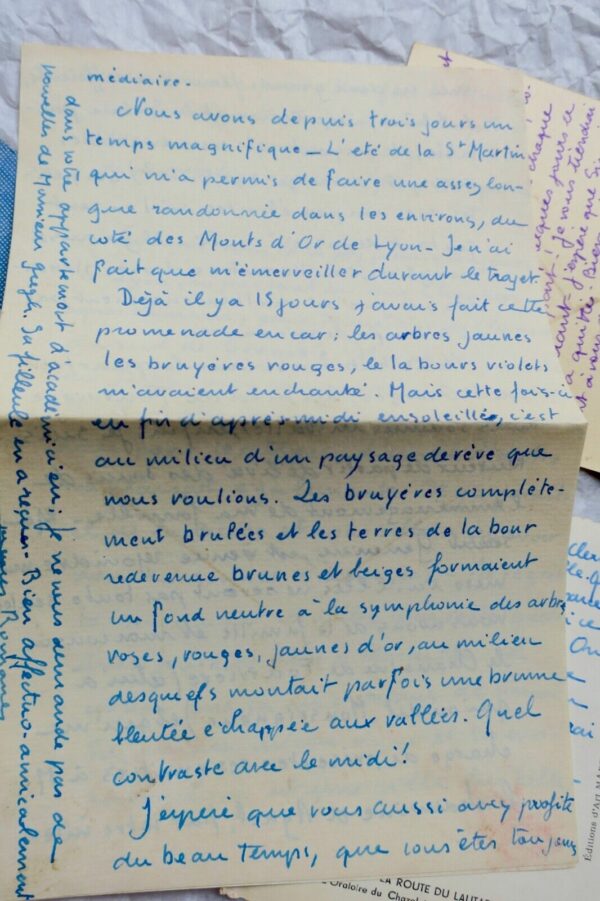 médiaire.
Nous avons depuis trois jours un
temps magnifique _ L'été de la St Martin
qui m'a permis de faire une assez lon-
gue randonnée dans les environs, du
coté des Monts d'Or de Lyon _ Je n'ai
fait que m'émerveiller durant le trajet.
Déjà il y a 15 jours j'avais fait cette
promenade en car : les arbres jaunes
les bruyères rouges, le labours violets
m'avaient enchanté. Mais cette fois-ci
en fin d'après-midi ensoleillée, c'est
au milieu d'un paysage de rêve que
nous roulions. Les bruyères complète-
ment brulées et les terres de labour
redevenue brunes et beiges formaient
un fond neutre à la symphonie des arbres
roses, rouges, jaunes d'or, au milieu
desquels montait parfois une brume
bleutée échappée aux vallées. Quel
contraste avec le midi!
J'espère que vous aussi avez profité
du beau temps, que vous êtes toujours
dans votre appartement d'académicien; je ne vous demande pas de
nouvelles de Monsieur Gregh. Sa filleule en a reçues - Bien affectuo-amicalement
Editions d'Art
LA ROUTE DU LAUTA
Oratoire du Chazel